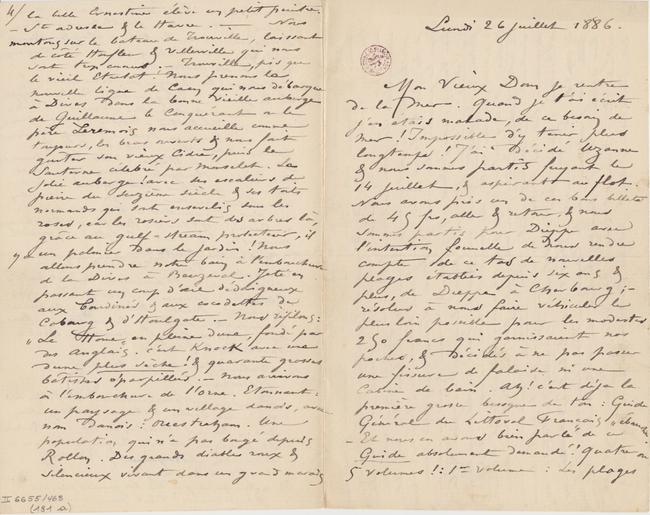 Lundi 26 juillet 1886.
Mon Vieux Dom, Je rentre
de la Mer. Quand je t'ai écrit
j'en étais malade, de ce besoin de
mer! Impossible d'y tenir plus
longtemps! J'ai décidé Suzanne
& nous sommes partis fuyant le
14 juillet, & aspirant au flot.
Nous avons pris un de ces bons billets
de 45 frs, aller & retour, & nous
sommes partis pour Dieppe avec
l'intention formelle de nous rendre
compte de ce tas de nouvelles
plages établies depuis six ans &
plus, de Dieppe à Cherbourg; –
résolus à nous faire véhiculer le
plus loin possible pour les modestes
250 francs qui garnissaient nos
poches, & décidés à ne pas passer
une fissure de falaise ni une
Cabine de bain. Ah! c'est déjà la
première grosse besogne du ton: Guide
Générale du Littoral Français
– Et nous en avons bien parlé de ce
Guide absolument demandé! quatre ou
5 volumes!: 1er volume: Les plages
4/ la belle Ernestine élève un petit peintre.
– Ste adresse & le Havre. – Nous
montons sur le bateau de Trouville, laissant
de côté Honfleur & Villerville qui nous
sont trop connus. – Trouville, pis que
le vieil Etretat! Nous prenons la
nouvelle ligne de Caen qui nous débarque
à Dives dans la bonne vieille auberge
de Guillaume le Conquérant où le
père Leremois nous accueille comme
toujours, les bras ouverts & nous fait
goûter son vieux Cidre, puis le
Sauterne célébré par Monselet. La
jolie auberge! avec ses escaliers de
pierre du seizième siècle & ses toits
normands qui sont ensevelis sous les
roses, car les rosiers sont des arbres là,
grâce au gulf-stream protecteur, il
y a un palmier dans le jardin! Nous
allons prendre notre bain à l'embouchure
de la Dives à Beuzeval. Jette en
passant un coup d'œil dédaigneux
aux Gandines & aux cocodettes de
Cabourg & d'Houlgate. – Nous
„Le Home" en pleine dune, fondé par
des Anglais. C'est Knocke avec une
dune plus sèche! & quarante grosses
bâtisses éparpillées. – Nous arrivons
à l'embouchure de l'Orne. Etonnant:
un paysage & un village danois, avec
nom Danois: Oucestreham. Une
population qui n'a pas bougé depuis
Rollon. Des grands diables roux &
silencieux vivant dans un grand marais
II 6655/468
(181 a)